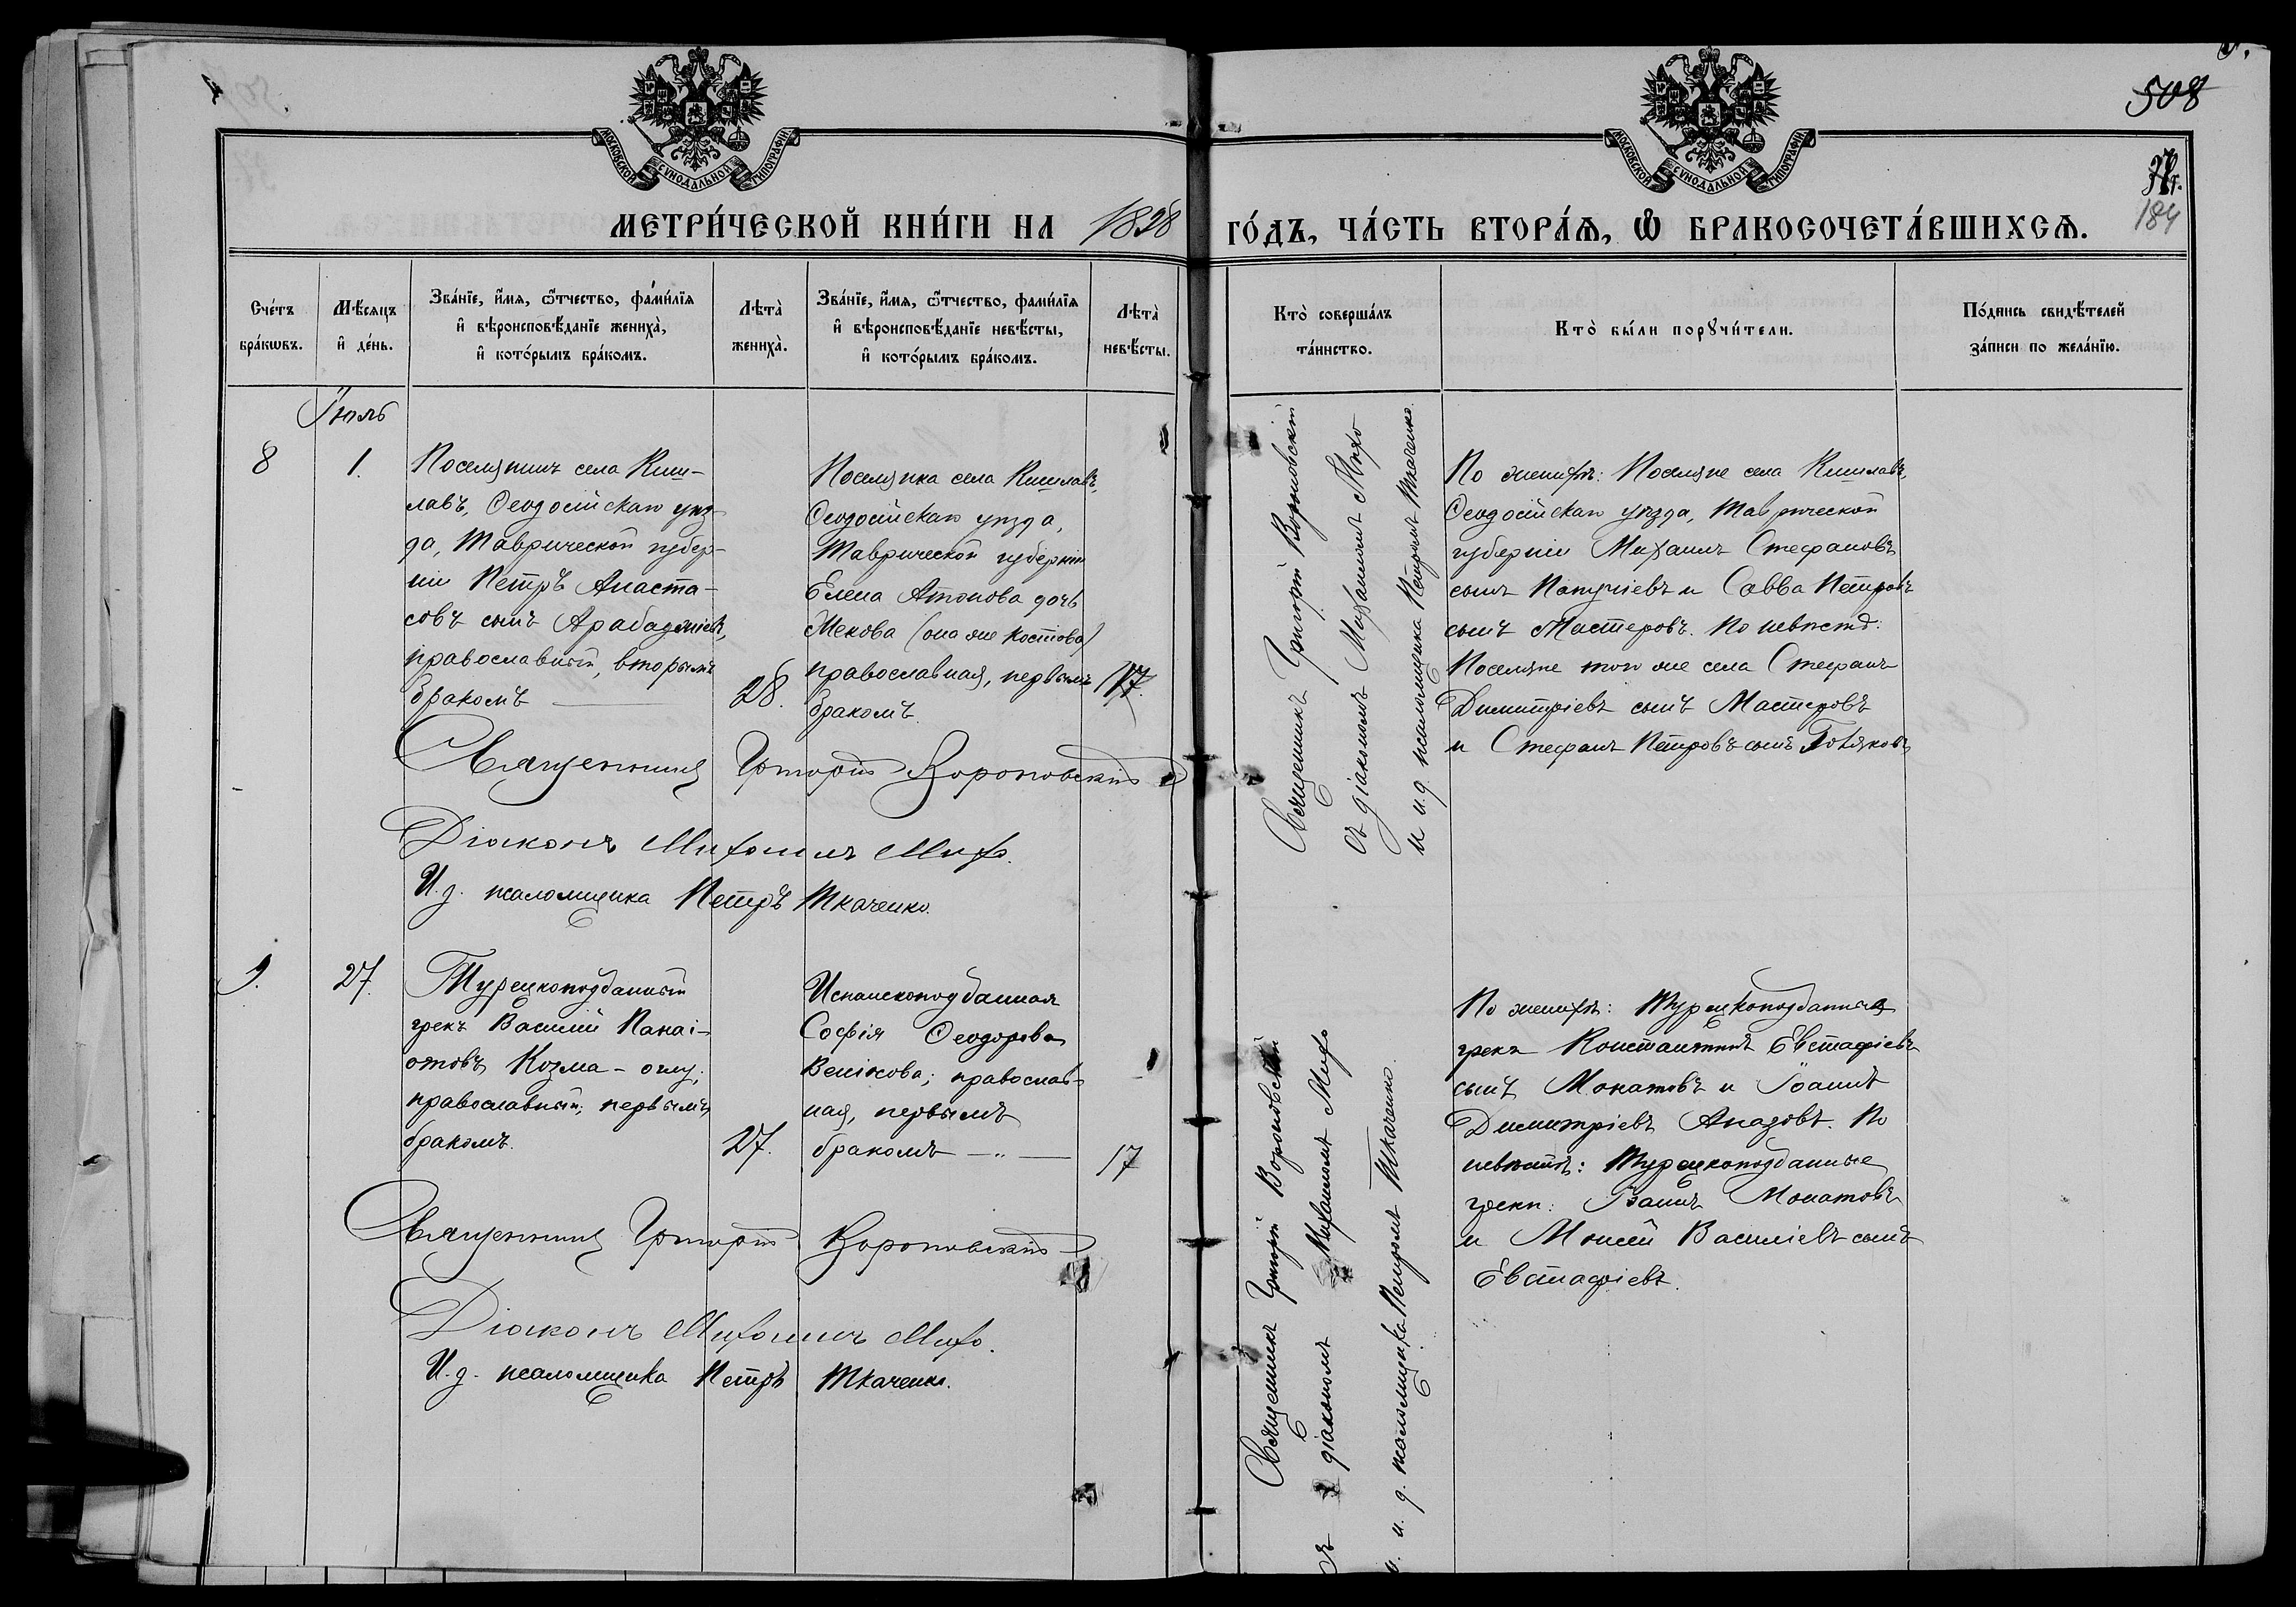 508
184
МОСКОВСКОЙ СѴНОДАЛЬНОЙ ТИПОГРАФІИ
МОСКОВСКОЙ СѴНОДАЛЬНОЙ ТИПОГРАФІИ
МЕТРИ́ЧЕСКОЙ КНИ́ГИ НА 1898 ГО́ДЪ, ЧА́СТЬ ВТОРА́Ѧ, Ѡ҆ БРАКОСОЧЕТА́ВШИХСѦ.
Сче́тъ
бра́кѡвъ.
Мѣ́сяцъ
и҆ де́нь.
Зва́нїе, и҆́мя, ѻ҆́тчество, фами́лїя
и҆ вѣроисповѣ́данїе жениха̀,
и҆ кото́рымъ бра́комъ.
Лѣта̀
жениха̀.
Зва́нїе, и҆́мя, ѻ҆́тчество, фами́лїя
и҆ вѣроисповѣ́данїе невѣ́сты,
и҆ кото́рымъ бра́комъ.
Лѣта̀
невѣ́сты.
Кто̀ соверша́лъ
та́инство.
Кто̀ бы́ли порꙋчи́тели.
По́дпись свидѣ́телей
за́писи по жела́нїю.
Іюль
8
1.
Поселянинъ села Киш-
лавъ, Ѳеодосійскаго уѣз-
да, Таврической губер-
ніи Петръ Анаста-
совъ сынъ Арабаджіевъ,
православный, вторымъ
бракомъ
28.
Поселянка села Кишлавъ,
Ѳеодосійскаго уѣзда,
Таврической губерніи
Елена Атонова дочь
Жекова (она же Костова)
православная, первымъ
бракомъ.
17.
Священникъ Григорій Вороновскій
съ діакономъ Михаиломъ Михо
и и. д. псаломщика Петромъ Ткаченко.
По женихѣ: Поселяне села Кишлавъ,
Ѳеодосійскаго уѣзда, Таврической
губерніи Михаилъ Стефановъ
сынъ и Савва Петровъ
сынъ Мастеровъ. По невѣстѣ:
Поселяне того же села Стефанъ
Димитріевъ сынъ Мастеровъ
и Стефанъ Петровъ сынъ
Священникъ Григорій Вороновскій
Діаконъ Михаилъ Михо.
И. д. псаломщика Петръ Ткаченко.
9.
27.
Турецкоподданный
грекъ Василій Панаі-
отовъ Козма-оглу;
православный; первымъ
бракомъ.
27.
Испанскоподданная
Софія Ѳеодорова
православ-
ная, первымъ
бракомъ
17
Священникъ Григорій Вороновскій
съ діакономъ Михаиломъ Михо
и. и. д. псаломщика Петромъ Ткаченко.
По женихѣ: Турецкоподданные
греки Константинъ Евстафіевъ
сынъ Монатовъ и Іоаннъ
Димитріевъ Анадовъ. По
невѣстѣ: Турецкоподданные
греки: Іоаннъ Монатовъ
и Моисей Василіевъ сынъ
Евстафіевъ.
Священникъ Григорій Вороновскій
Діаконъ Михаилъ Михо.
И. д. псаломщика Петръ Ткаченко.